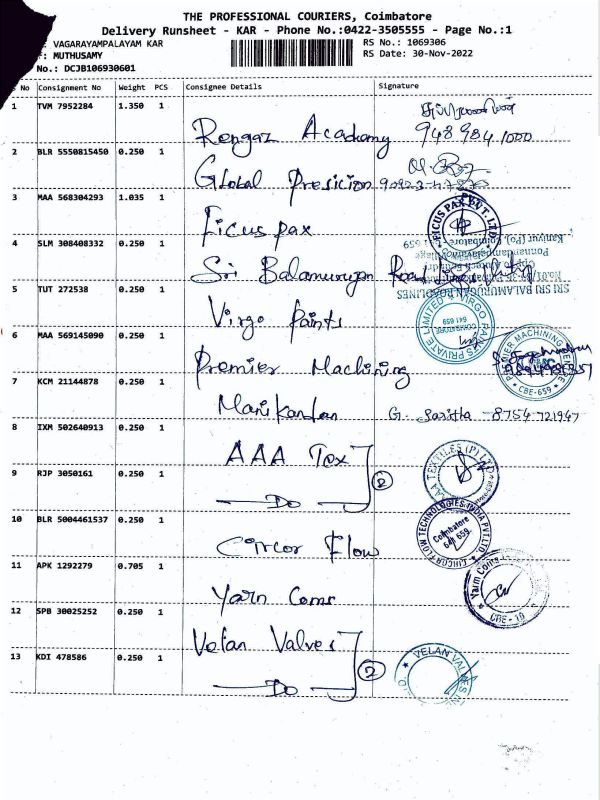 THE PROFESSIONAL COURIERS, Coimbatore
Delivery Runsheet - KAR - Phone No.:0422-3505555 - Page No.:1
: VAGARAYAMPALAYAM KAR RS No.: 1069306
: MUTHUSAMY RS Date: 30-Nov-2022
No.: DCJB106930601
No Consignment No Weight PCS Consignee Details Signature
1 TVM 7952284 1.350 1 Rengaz Academy 948 984 1000
2 BLR 5550815450 0.250 1 Global Presicion
3 MAA 568304293 1.035 1 Ficus pax FICUS PAX PVT. LTD.
4 SLM 308408332 0.250 1 Sri Balamurugan
SRI SRI BALAMURUGAN ROADLINES
5 TUT 272538 0.250 1 Virgo Paints PRIVATE LIMITED COIMBATORE 641 659
6 MAA 569145090 0.250 1 Premier Machining PREMIER MACHINING CBE-659
7 KCM 21144878 0.250 1 Manikandan G. Saritha 8754721947
8 IXM 502640913 0.250 1 AAA Tex AAA TEXTILES (P) LTD
9 RJP 3050161 0.250 1 Do 2
10 BLR 5004461537 0.250 1 Circor Flow CIRCOR FLOW TECHNOLOGIES INDIA PVT.LTD. Coimbatore 641 659
11 APK 1292279 0.705 1 Yarn Coms Yarn Coms CBE - 19
12 SPB 30025252 0.250 1 Velan Valves
13 KDI 478586 0.250 1 Do 2 VELAN VALVES